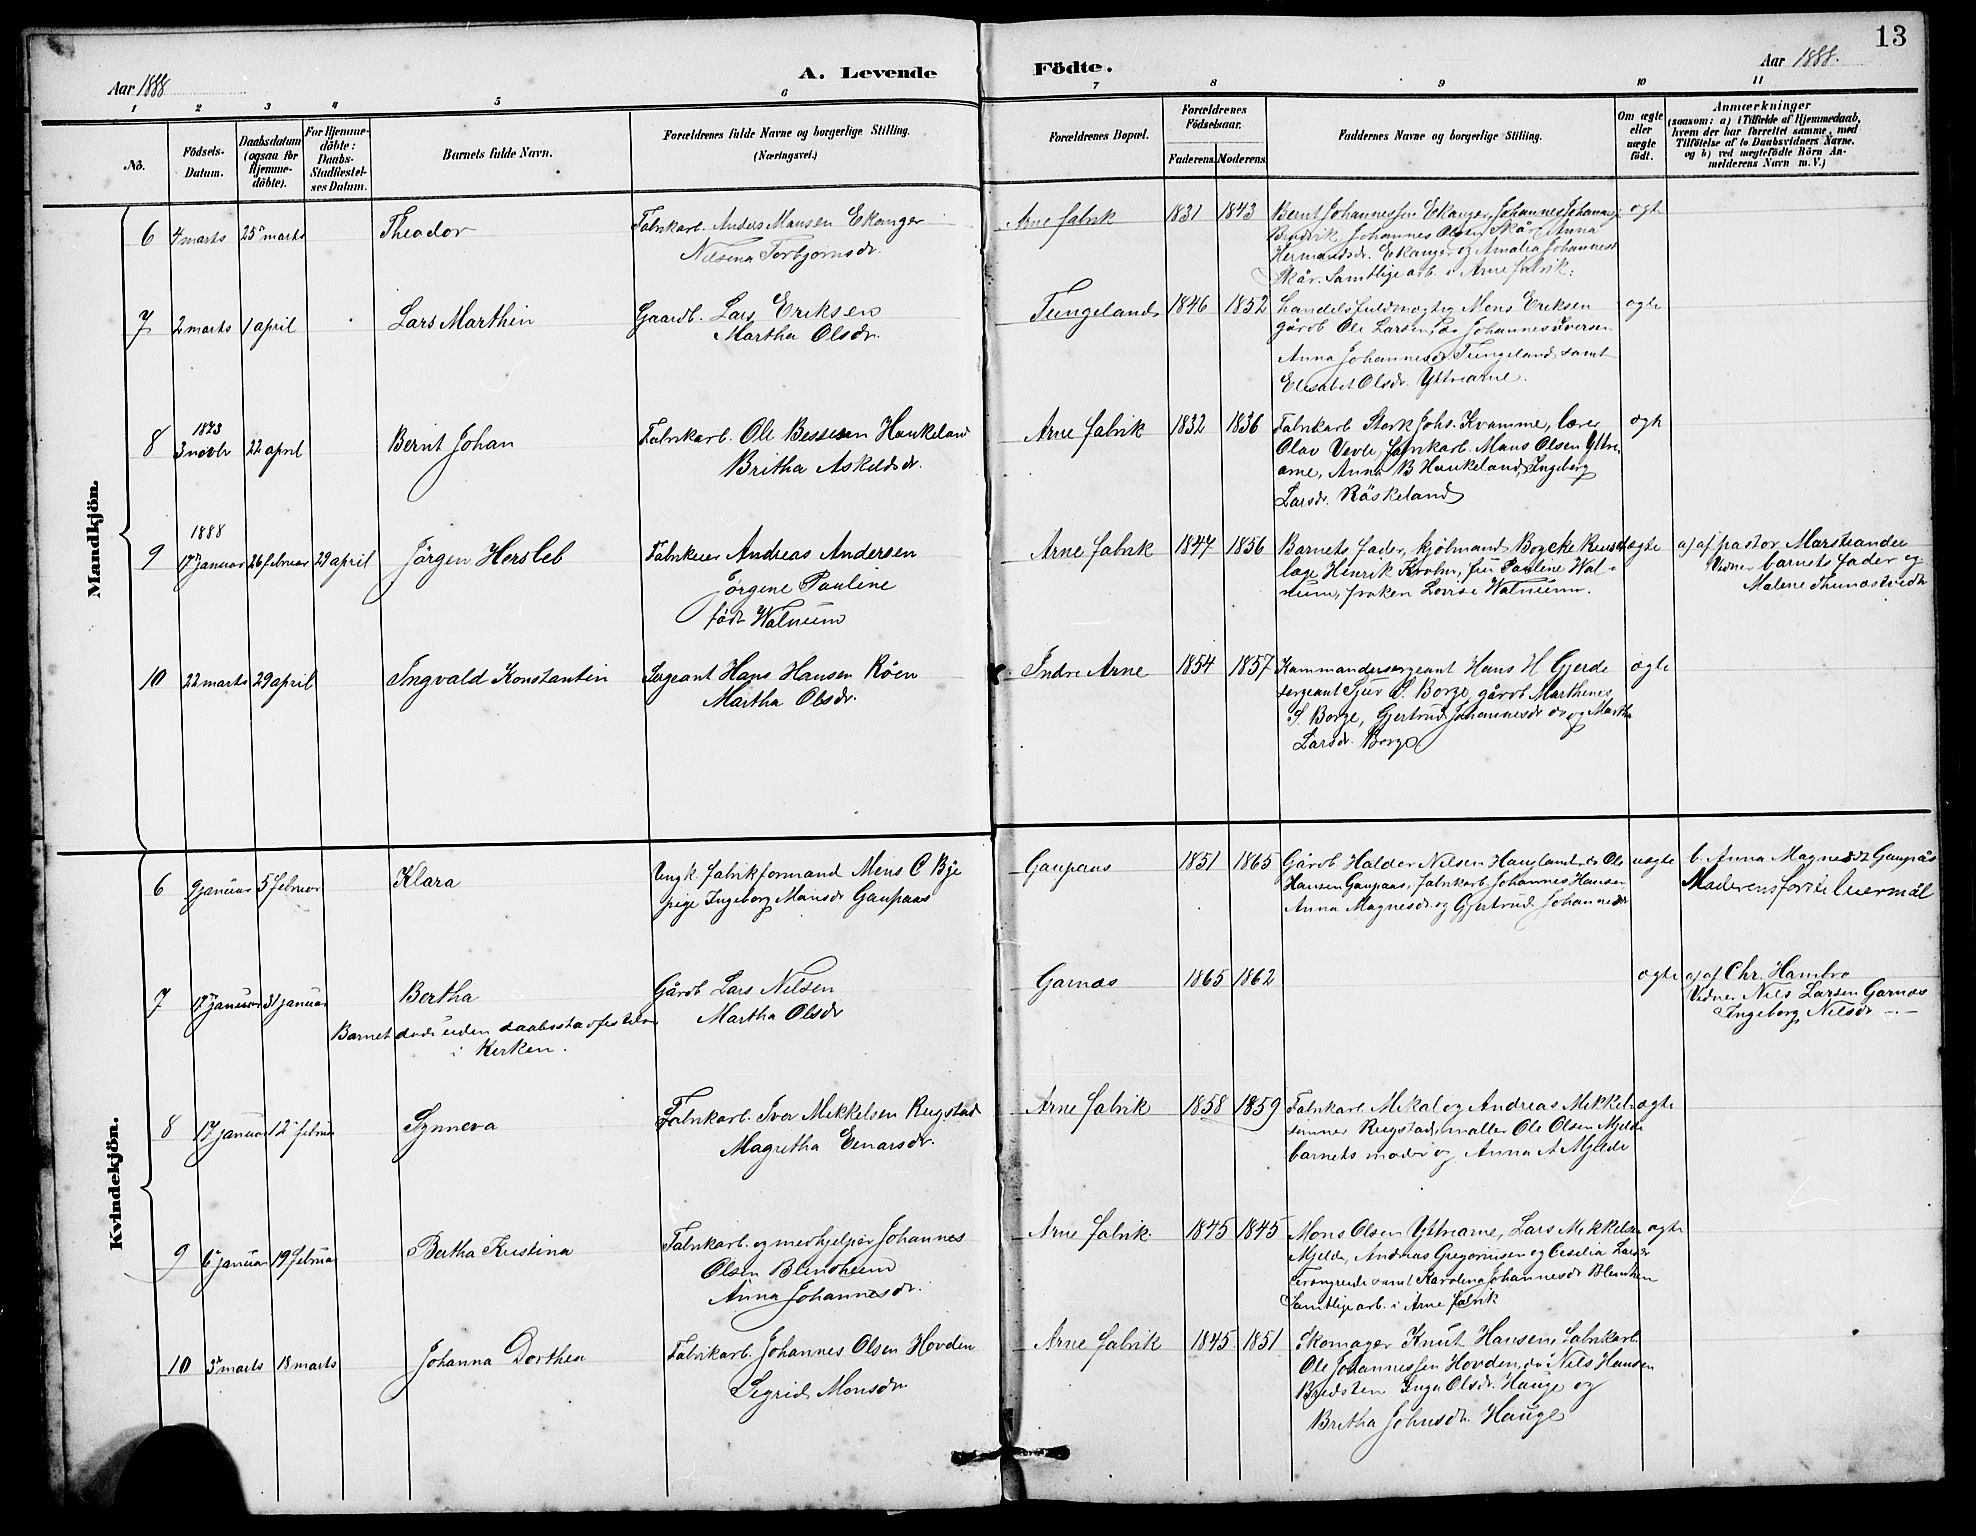 13
Aar 1888. A. Levende Födte. Aar 1888.
1 2 3 4 5 6 7 8 9 10 11
No. Födsels-Datum. Daabsdatum (ogsaa for Hjemme-döbte). For Hjemme-döbte: Daabs-Stadfæstel-ses Datum. Barnets fulde Navn. Forældrenes fulde Navne og borgerlige Stilling. (Næringsvei.) Forældrenes Bopæl. Forældrenes Födselsaar. Faderens. Moderens. Faddernes Navne og borgerlige Stilling. Om ægte eller uægte födt. Anmærkninger (saasom: a) i Tilfælde af Hjemmedaab, hvem der har forrettet samme, med Tilföielse af to Daabsvidners Navne, og b) ved uægtefödte Börn An-melderens Navn m. V.)
Mandkjön.
6 4 marts 25 marts Theodor Fabrikarb. Anders Mansen Ekanger Arne fabrik 1831 1843 Bernt Johannessen Ekanger, Johannes ægte
Nilsina Torbjørnsdr. Johannes Olsen Skår, Anna
Hermandsdr. Ekanger og Amalia Johannesd
Skår. Samtlige arb. i Arne fabrik.
7 2 marts 1 april Lars Marthin Gaardb. Lars Eriksen Tungeland 1846 1852 Handelsfuldmægtig Mons Eriksen ægte
Martha Olsdr. gårdb Ole Larsen, do Johannes Iversen
Anna Johannesdr Tungeland samt
Elisabet Olsdr. Yttrearne.
8 1873 3 novbr 22 april Bernt Johan Fabrikarb. Ole Bessesen Haukeland Arne fabrik 1832 1836 Fabrikarb Stork Johs. Kvamme, lærer ægte
Britha Askildsdr. Olav Vevle, fabrikarb. Mans Olsen Yttre
arne, Anna B Haukeland, Ingeborg
Larsdr. Röskeland
9 1888 17 januar 26 februar 29 april Jörgen Hersleb Fabrikeier Andreas Andersen Arne fabrik 1847 1856 Barnets fader, kjøbmand Boycke ægte a) af pastor Marstrander
Jörgine Pauline læge Henrik Krohn, fru Pauline Wal- Vidner barnets fader og
født Walnum num, frøken Lovise Walnum. Malene Thunestvedt
10 22 marts 29 april Ingvald Konstantin Sergeant Hans Hansen Röen Indre Arne 1854 1857 Kommandersergeant Hans H Gjerde ægte
Martha Olsdr. sergeant Sjur S. Borge, gårdb Marthines
S. Borge, Gjertrud Johannesdr do og Martha
Larsdr. Borge
Kvindekjön.
6 9 januar 5 februar Klara Ungk. fabrikformand Mons C Bye Gaupaas 1851 1865 Gårdb Haldor Nilsen Haugland, do Ole uægte b. Anna Magnesdr Gaupås
pige Ingeborg Monsdr Gaupaas Hansen Gaupaas, fabrikarb Johannes Hansen Moderens første leiermål
Anna Magnesdr og Gjertrud Johannesdr
7 17 januar 31 januar Bertha Gårdb Lars Nilsen Garnæs 1865 1862 ægte a) af Chr. Hambro
Martha Olsdr Vidner Nils Larsen Garnæs
Barnet døde uden daabsstadfæstelse Ingeborg Nilsdr — " —
i Kirken.
8 17 januar 12 februar Synneva Fabrikarb. Iver Mikkelsen Rugstad Arne fabrik 1858 1859 Fabrikarb. Mikal og Andreas Mikkel- ægte
Magretha Einarsdr. sønner Rugstad, møller Ole Olsen Mjelde
barnets moder og Anna A Mjelde
9 6 januar 19 februar Bertha Kristina Fabrikarb. og medhjelper Johannes Arne fabrik. 1845 1845 Mons Olsen Yttrearne, Lars Mikkelsen ægte
Olsen Blindheim Mjelde, Andreas Gregoriusen og Cesilia Larsdr
Anna Johannesdr. samt Karolina Johannesdr Blindheim
Samtlige arb. i Arne fabrik
10 3 marts 18 marts Johanna Dorthea Fabrikarb. Johannes Olsen Hovden Arne fabrik 1845 1851 Skomager Knut Hansen, fabrikarb
Sigrid Monsdr Ole Johannessen Hovden, do Nils Hansen
Bredsten Inga Olsdr. Hauge og
Britha Johnsdr. Hauge